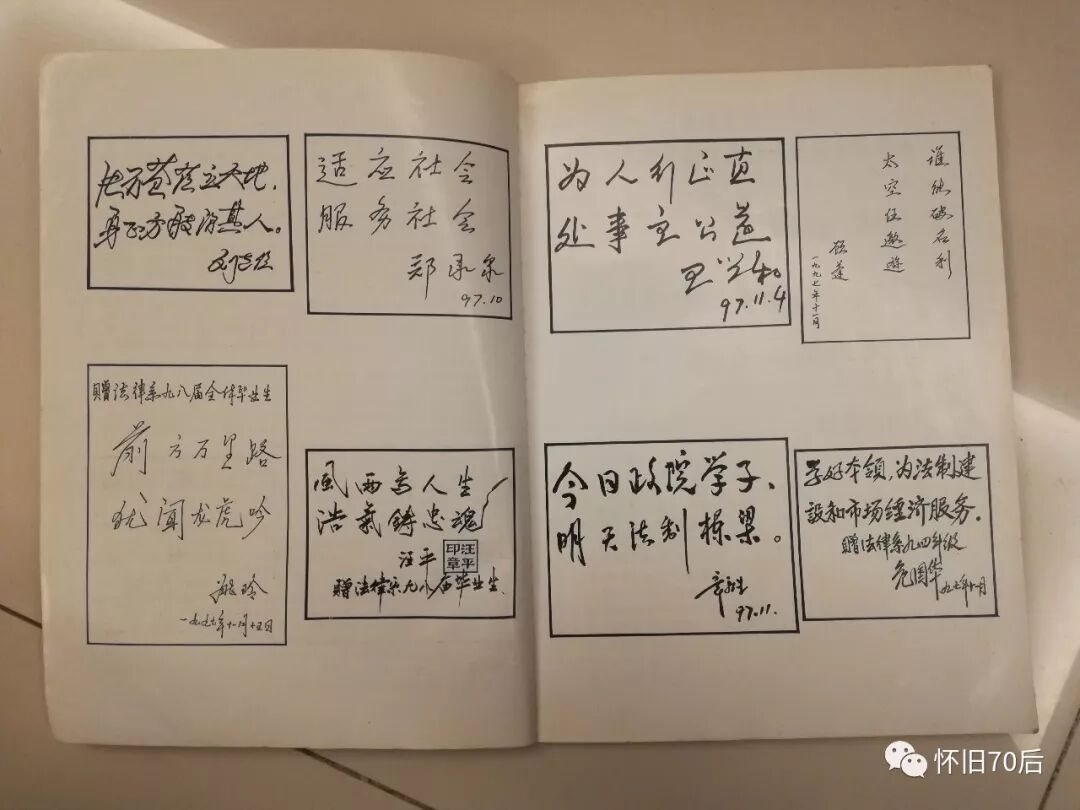 立天地,
其人。
适应社会
服务社会
郑
97.10
赠法律系九八届全体毕业生
前方万里路
犹闻龙虎吟
玲
一九九七年十一月十五日
風雨寫人生
浩氣鑄忠魂
汪平
汪平印章
赠法律系九八届毕业生
为人行正直
处事至公道
97.11.4
谁能破名利
太空任遨遊
一九九七年十一月
今日政院学子、
明天法制栋梁。
97.11.
学好本领,为法制建
設和市场经济服务。
赠法律系九四年级
危国华
九七年十一月
怀旧70后